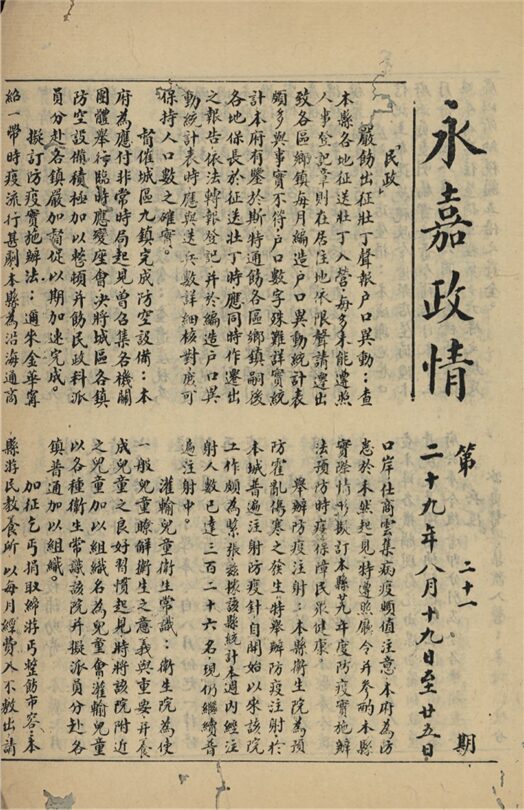 永嘉政情
第二十一期
二十九年八月十九日至廿五日
民政
嚴飭出征壯丁聲報户口異動：查
本縣各地征送壯丁入營，每多未能遵照
人事登記章則在居住地依限聲請遷出
致各區鄉鎮每月編造户口異動統計表
頗多與事實不符，户口數字殊難詳實統
計本府有鑒於斯特通飭各區鄉鎮嗣後
各地保長於征送壯丁時應同時作遷出
之報告依法轉報登記并於編造户口異
動統計表時應與送兵數詳細核對庶可
保持人口數之確實。
督催城區九鎮完成防空設備：本
府為應付非常時局起見曾召集各機關
團體舉行臨時應變座會決將城區各鎮
防空設備積極加以整頓并飭民政科派
員分赴各鎮嚴加督促以期加速完成。
擬訂防疫實施辦法：邇來金華甯
紹一帶時疫流行甚劇本縣為沿海通商
口岸仕商雲集病疫頗值注意本府為防
患於未然起見特遵照廳令并參酌本縣
實際情形擬訂本縣年度防疫實施辦
法預防時疫保障民衆健康
舉辦防疫注射：本縣衛生院為預
防霍亂傷寒之發生特舉辦防疫注射於
本城普遍注射防疫針自開始以來該院
工作頗為緊張茲據該縣統計本週内經注
射人數已達三百二十六名，現仍繼續普
遍注射中。
灌輸兒童衛生常識：衛生院為使
一般兒童瞭解衛生之意義與重要并養
成兒童之良好習慣起見時將該院附近
之兒童加以組織名為兒童會灌輸兒童
以各種衛生常識該院并擬派員分赴各
鎮普遍加以組織。
加征乞丐捐取締游丐整飭市容：本
縣游民教養所以每月經費入不敷出請